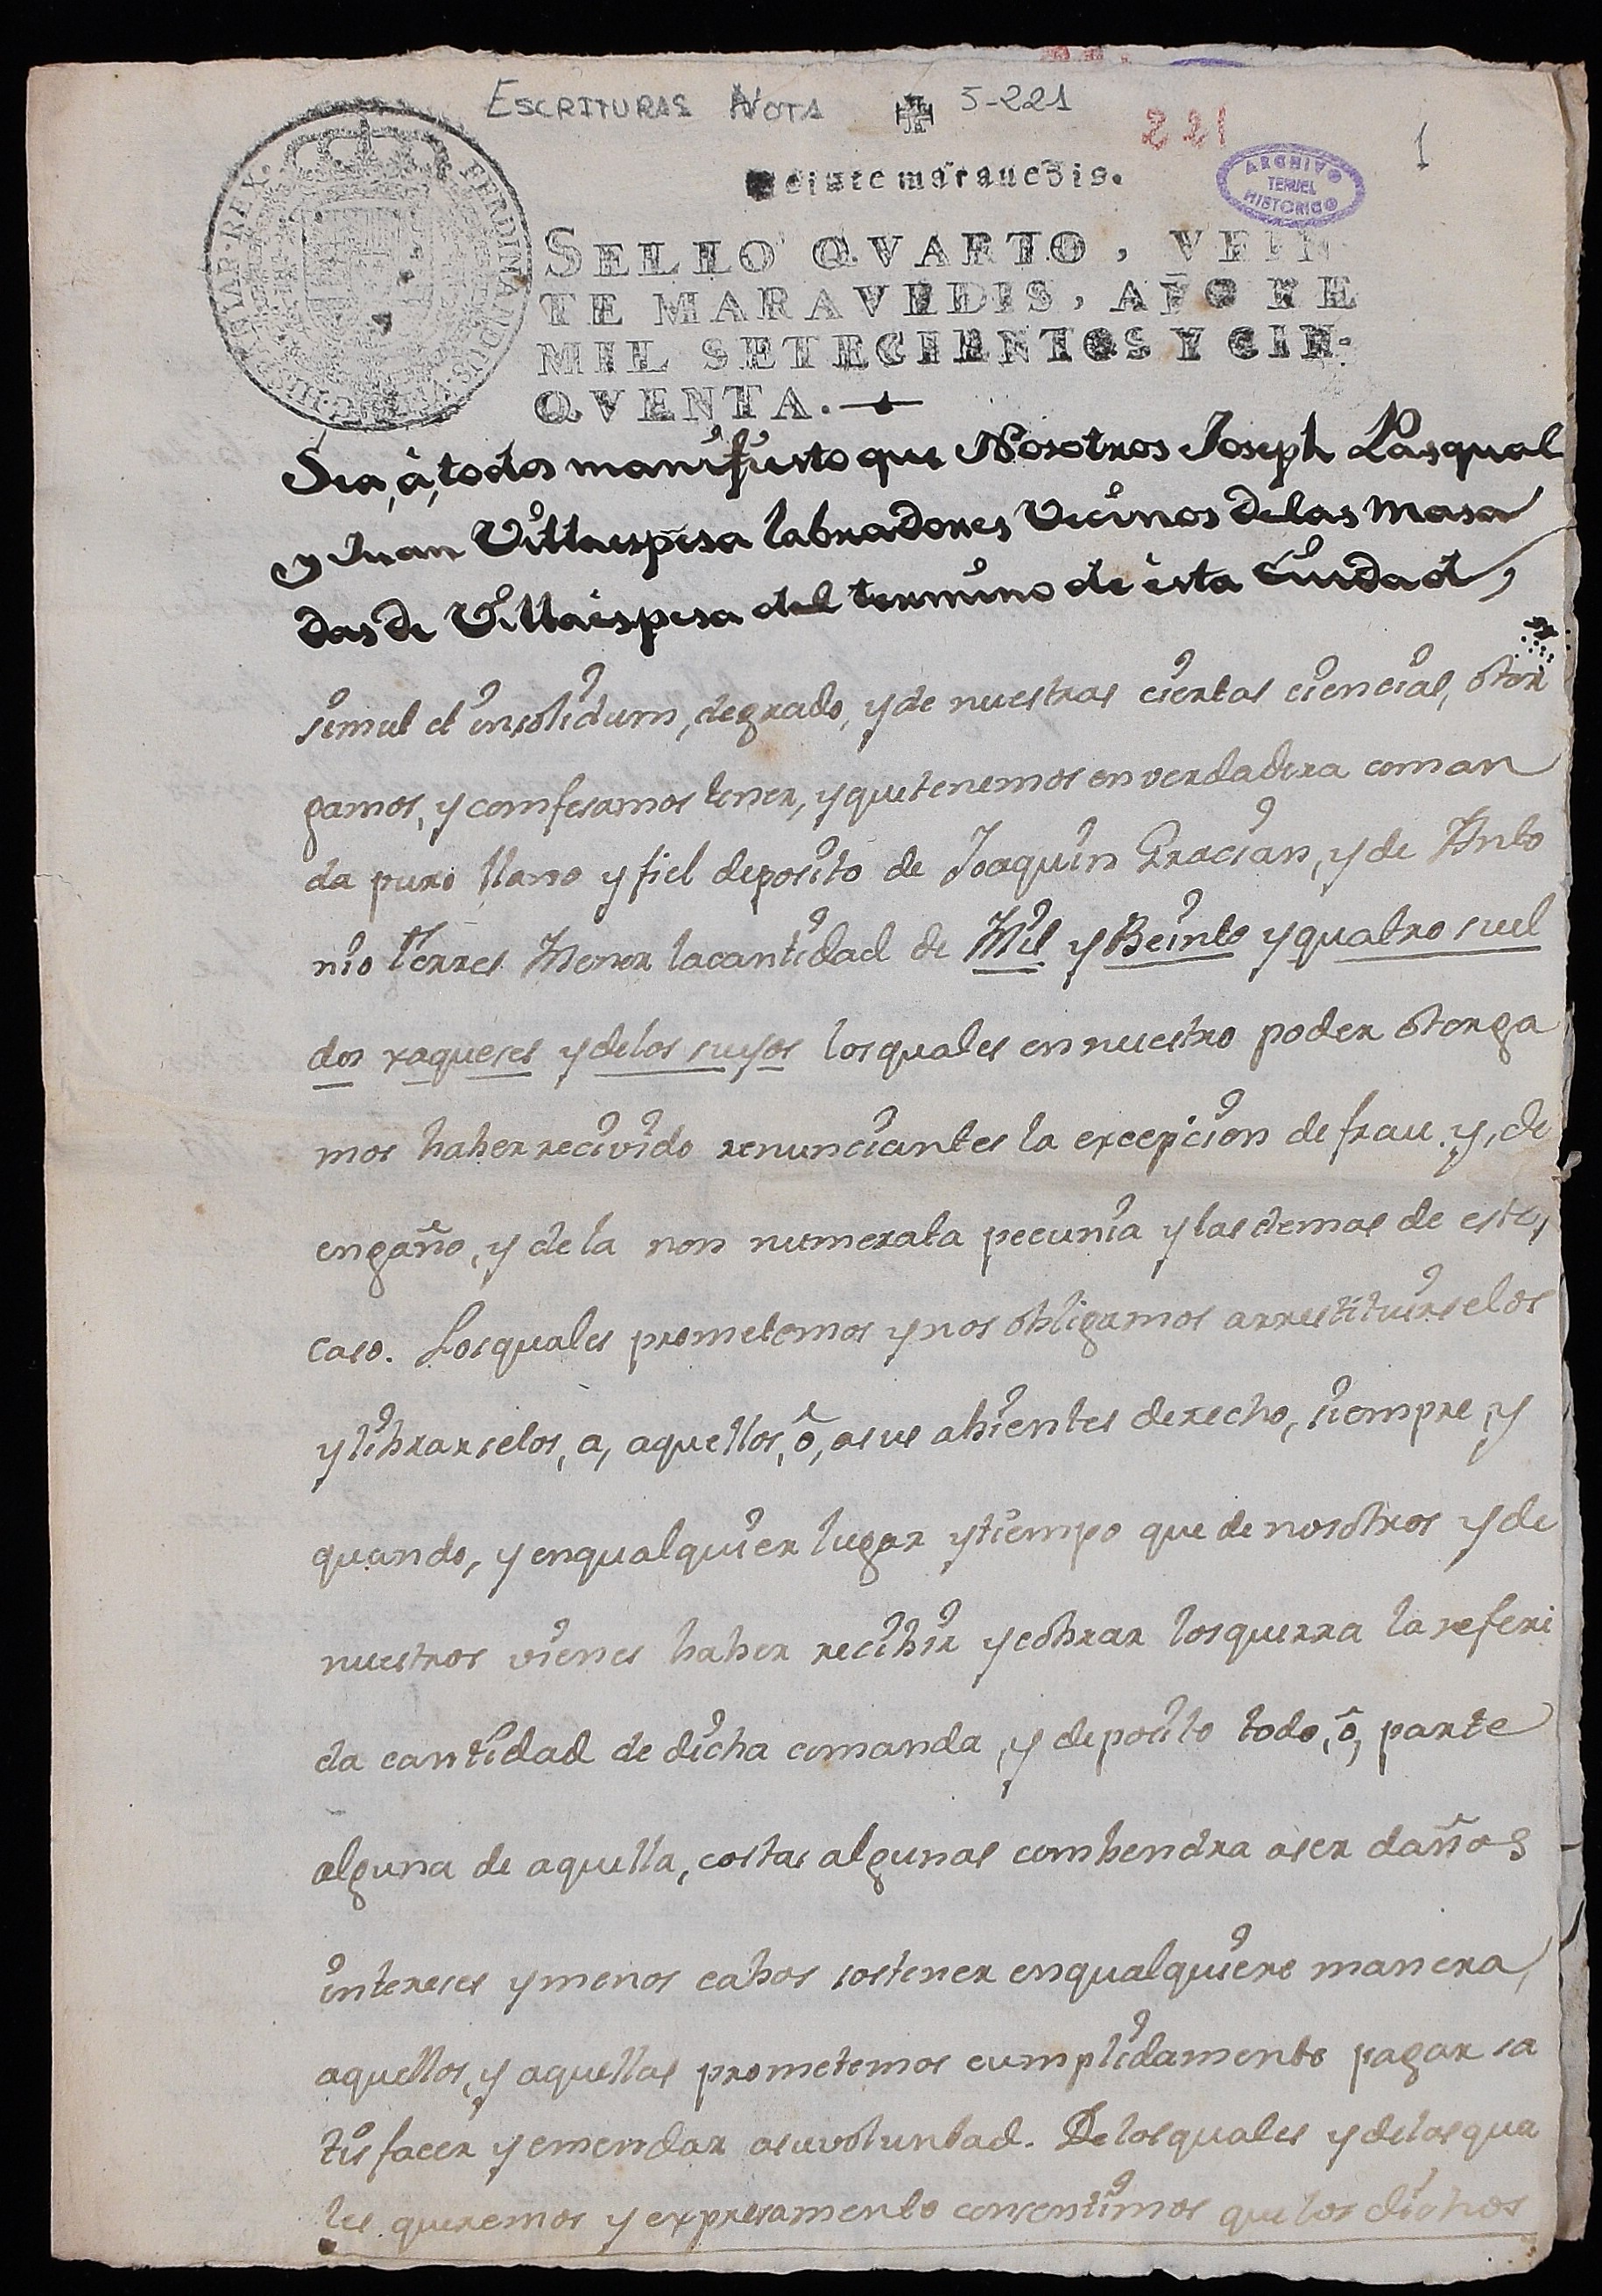 ESCRITURAS NOTA 5-221
221
1
ARCHIVO
TERUEL
HISTORICO
Veinte marauedis.
FERDINANDUS·VI·D·G·HISPANIAR·REX·
SELLO QVARTO, VEIN
TE MARAVEDIS, AÑO DE
MIL SETECIENTOS Y CIN-
QVENTA.
Sea, à, todos manifiesto que Nosotros Joseph Pasqual
y Juan Villaespesa labradores Vecinos de las Masa
das de Villaespesa del termino de èsta Ciudad,
simul et insolidum, de grado, y de nuestras ciertas ciencias, otor
gamos, y comfesamos tener, y que tenemos en verdadera coman
da puro llano y fiel deposito de Joaquin Gracian, y de Anto
nio Terres Menor la cantidad de Mil y Beinte y quatro suel
dos xaqueses y de los suyos los quales en nuestro poder otorga
mos haber recivido renunciantes la excepcion de frau y, de
engaño, y de la non numerata pecunia y las demas de este,
caso. Los quales prometemos y nos obligamos arrestituirselos
y librarselos, a, aquellos, ô, asus abientes derecho, siempre, y
quando, y en qualquier lugar y tiempo que de nosotros y de
nuestros vienes haber recibir y cobrar los querra la referi
da cantidad de dicha comanda, y deposito todo, ô, parte
alguna de aquella, costas algunas combendra aser daños
intereses y menos cabos sostener en qualquiere manera,
aquellos, y aquellas prometemos cumplidamente pagar sa
tisfacer y emendar asu voluntad. De los quales y de las qua
les queremos y expresamente consentimos que los dichos